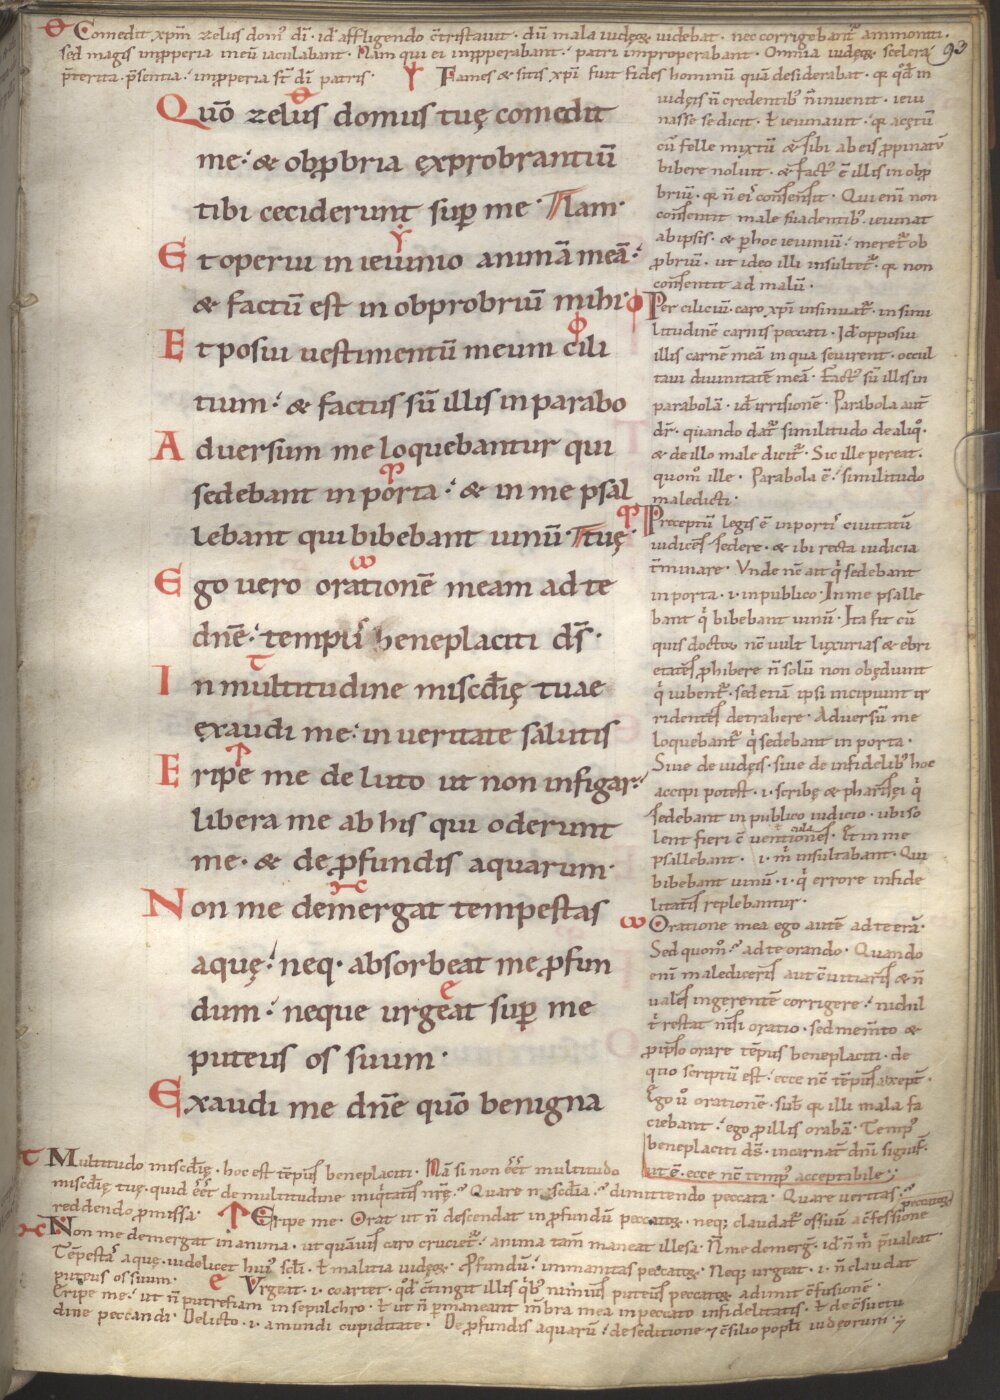 Comedit xpm̄ zelus domꝰ dī. id ē affligendo c̄tristauit. dū mala iudęoꝝ uidebat. nec corrigebant᷑ ammoniti.
sed magis inp̱peria in eū iaculabant. Nam qui ei inp̱perabant. patri improperabant. Omnia iudęoꝝ scelera 93
p̄terita. p̄sentia. inp̱peria st̄ dī patris. Fames & sitis xpī fuit fides hominū quā desiderabat. qꝫ qd̄ in
Quō zelus domus tuę comedit
me. & obp̱bria exprobrantiū
tibi ceciderunt sup̱ me. Nam
Et operui in ieiunio animā meā.
& factū est in obprobriū mihi.
Et posui uestimentū meum cili
tium. & factus sū illis in parabo
Aduersum me loquebantur qui
sedebant in porta. & in me psal
lebant qui bibebant uinū. tuę
Ego uero orationē meam ad te
dnē. tempus beneplaciti ds̄.
In multitudine miscd̄ię tuae
exaudi me. in ueritate salutis
Eripe me de luto ut non infigar.
libera me ab his qui oderunt
me. & de p̱fundis aquarum.
Non me demergat tempestas
aquę. neq. absorbeat me p̱fun
dum. neque urgeat sup̱ me
puteus os suum.
Exaudi me dnē quō benigna
iudęis n̄ credentibꝰ n̄ inuenit. ieiu
nasse se dicit. ł ieiunauit. qꝫ acętū
cū felle mixtū & sibi ab eis p̱pinatū
bibere noluit. & factꝰ ē illis in obp̱
briū. qꝫ n̄ eis consensit. Qui enī non
consentit male suadentibꝰ. ieiunat
ab ipsis. & p̱ hoc ieiuniū. meret᷑ ob
p̱briū. ut ideo illi insultet᷑. qꝫ non
consentit ad malū.
Per ciliciū. caro xpī insinuat᷑. in simi
litudinē carnis peccati. Id ē opposui
illis carnē meā in qua seuirent. occul
taui diuinitatē meā. Factꝰ sū illis in
parabolā. id ē irrisionē. Parabola aut̄
dr̄. quando dat᷑ similitudo de aliqꝰ.
& de illo male dicit᷑. Sic ille pereat.
quomꝰ ille. Parabola ē. similitudo
maledicti.
Preceptū legis ē in portis ciuitatū
iudices sedere. & ibi recta iudicia
t̄minare. Vnde nē ait qͥ sedebant
in porta. i. in publico. In me psalle
bant qͥ bibebant uinū. Ita fit cū
quis doctor nē uult luxurias & ebri
etates p̱hibere n̄ solū non obędiunt
qͥ iubent᷑. sed etiā ipsi incipiunt ir
ridentes detrahere. Aduersū me
loquebant᷑ qͥ sedebant in porta.
Siue de iudęis. siue de infidelibꝰ hoc
accipi potest. i. scribę & pharisęi qͥ
sedebant in publico iudicio. ubi so
lent fieri
Et in me
psallebant. i. m̄ insultabant. Qui
bibebant uinū. i. qͥ errore infide
litatis replebantur.
Oratione mea ego autē ad te erā.
Sed quomꝰ. ad te orando. Quando
enī
ingerentē corrigere. nichil
restat nisi oratio. sed memto &
p̱ ipso orare tēpus beneplaciti. de
quo scriptū est. ecce nc̄ tēpus accept̄.
Ego ū orationē. sub qꝫ illi mala fa
ciebant. ego p̱ illis orabā. Tempꝰ
beneplaciti ds̄. incarnat̄ dnī signif̄.
ut ē. ecce nc̄ tempꝰ acceptabile.
Multitudo miscd̄ię. hoc est tēpus beneplaciti. Nā si non eēt multitudo
miscd̄ię tuę. quid eēt de multitudine iniqͥtatis nrę. Quare miscd̄ia. dimittendo peccata. Quare ueritas.
reddendo p̱missa. Eripe me. Orat ut n̄ descendat in p̱fundū peccatoꝝ. neqꝫ claudat᷑ os suū a c̄fessione peccatoꝝ
Non me demergat in anima. ut quāuis caro cruciet᷑. anima tam̄ maneat illesa. N̄ me demerḡ. id ē n̄ m̄ p̄ualeat
Tēpestas aque. uidelicet huiꝰ sc̄li. ł malitia iudęoꝝ. Pfundū. immanitas peccatoꝝ. Neqꝫ urgeat. i. n̄ claudat
puteus os suum. Vrgeat. i. coartet. qd̄ c̄tingit illis qͥbꝰ nimius puteus peccatoꝝ adimit c̄fusionē.
Eripe me. ut n̄ putrefiam in sepulchro. ł ut n̄ p̱maneant m̄bra mea in peccato infidelitatis. ł de c̄suetu
dine peccandi. Delicto. i. a mundi cupiditate. De p̱fundis aquarū. de seditione & c̄silio popli iudęorum.